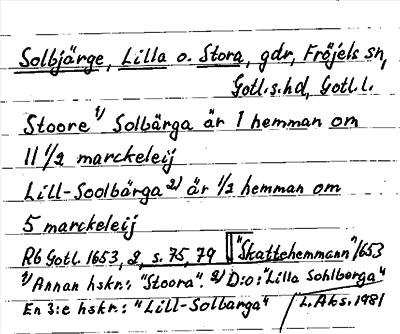 Solbjärge, Lilla o. Stora, gdr, Fröjels sn,
Gotl.s.hd, Gotl.l.
Stoore 1) Solbärga är 1 hemman om
11 1/2 marckeleij
Lill-Soolbärga 2) är 1/2 hemman om
5 marckeleij
Rb Gotl. 1653, 2, s. 75, 79 "Skattehemmann" 1653
1) Annan hskr: "Stoora". 2) D:o: "Lilla Sohlberga"
En 3:e hskr: "Lill-Solbarga" L. Aks. 1981